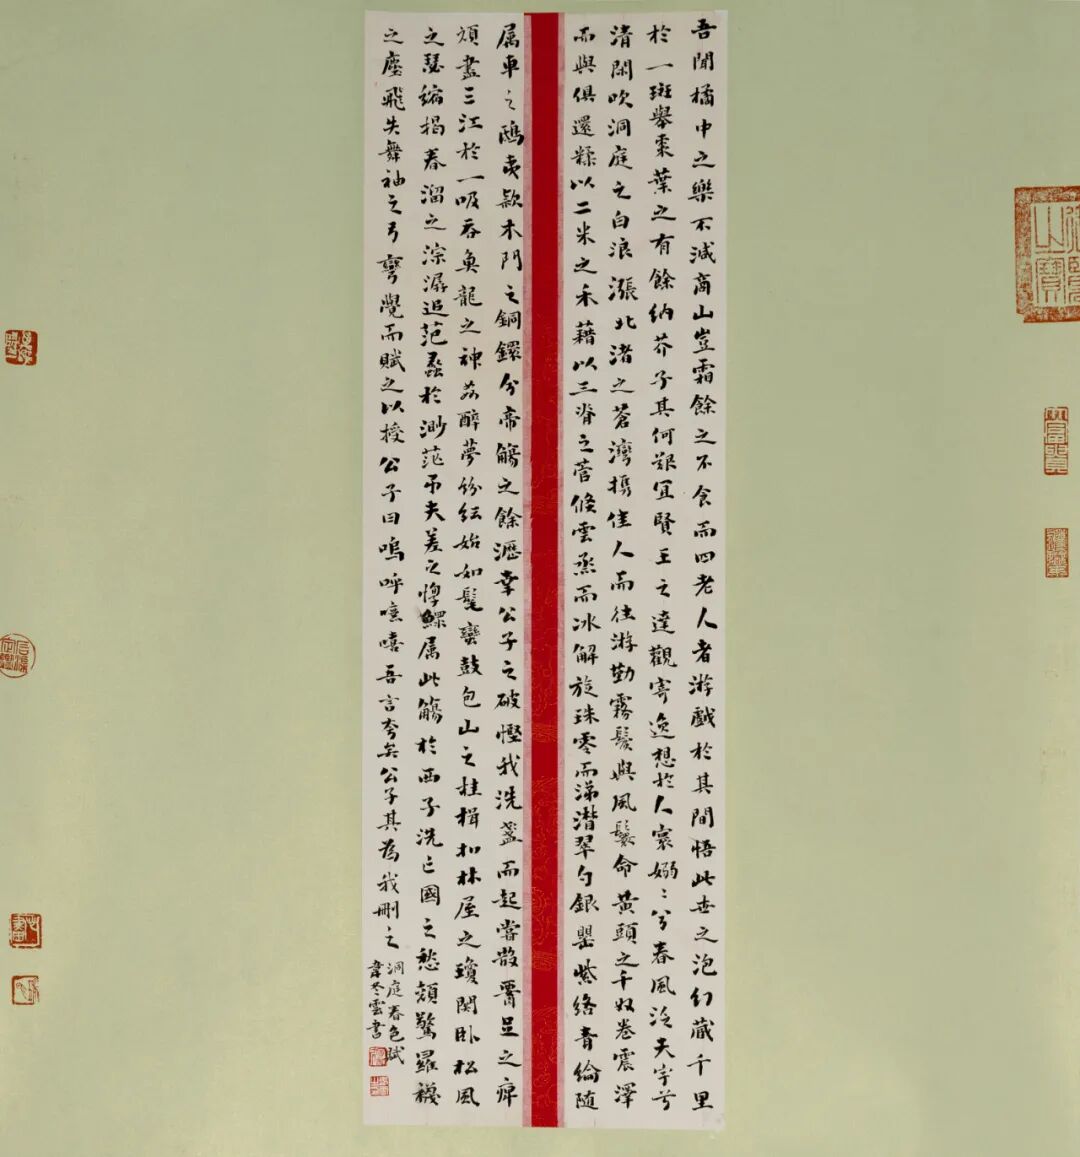 吾聞橘中之樂不減商山豈霜餘之不食而四老人者游戲於其間悟此世之泡幻藏千里
於一斑舉棗葉之有餘納芥子其何艱宜賢王之達觀寄逸想於人寰嫋〻兮春風泛天宇兮
清閑吹洞庭之白浪漲北渚之蒼灣攜佳人而往游勤霧鬢與風鬟命黃頭之千奴卷震澤
而與俱還糅以二米之禾藉以三脊之菅倏雲烝而冰解旋珠零而涕潸翠勺銀罌紫絡青綸隨
属車之鴟夷款木門之銅鐶分帝觴之餘瀝幸公子之破慳我洗盞而起嘗散腰足之痹
頑盡三江於一吸吞魚龍之神姦醉夢紛紜始如髦蠻鼓包山之桂楫扣林屋之瓊關卧松風
之瑟縮揭春溜之淙潺追范蠡於渺茫弔夫差之惸鰥属此觴於西子洗亡國之愁顏驚羅襪
之塵飛失舞袖之弓彎覺而賦之以授公子曰嗚呼噫嘻吾言夸矣公子其為我刪之
洞庭春色賦
韋冬雲書